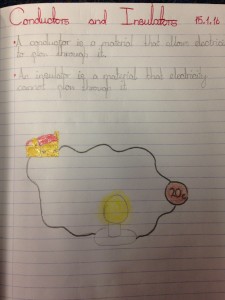 Conductors and Insulators 15.1.16
• A conductor is a material that allows electrici
to flow through it.
• An insulator is a material that electricity
cannot flow through it.
20p